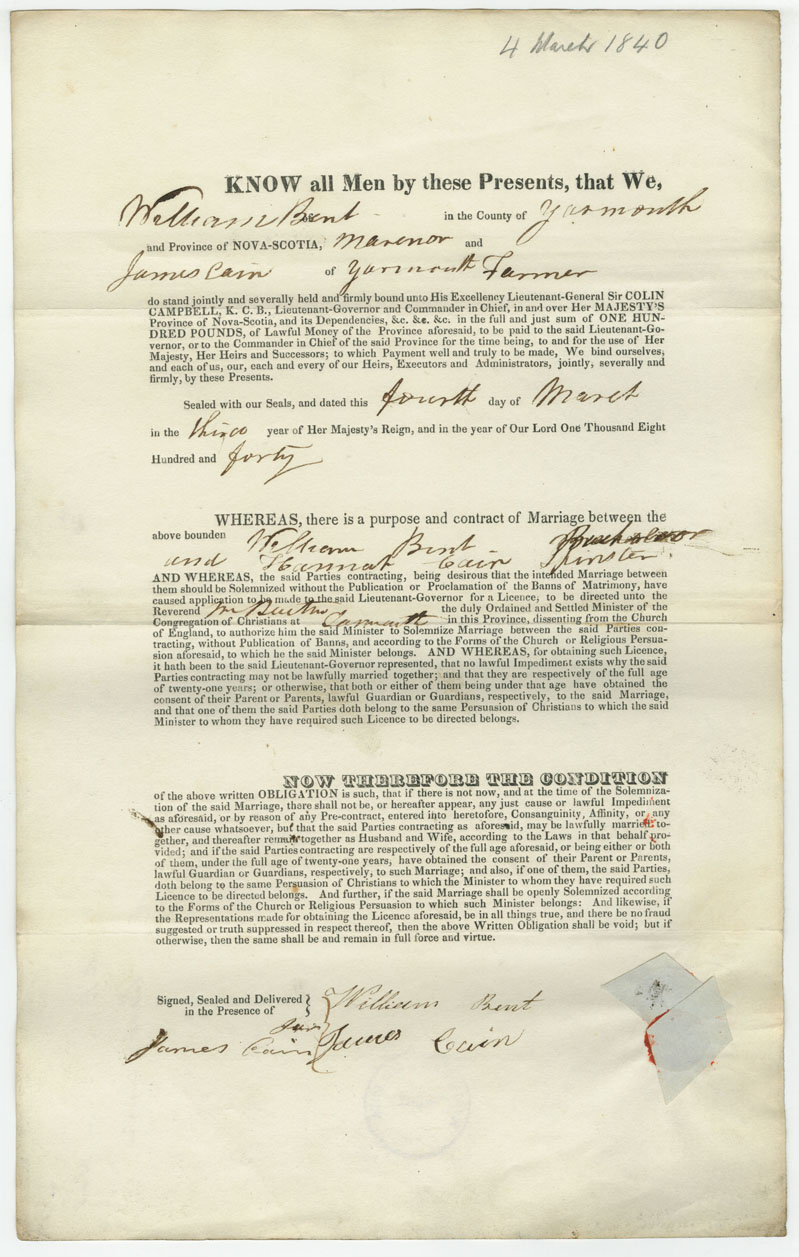 4 March 1840
KNOW all Men by these Presents, that We,
William Bent of in the County of Yarmouth
and Province of NOVA-SCOTIA, Marenor and
James Cain of Yarmouth Farmer
do stand jointly and severally held and firmly bound unto His Excellency Lieutenant-General Sir COLIN
CAMPBELL, K. C. B., Lieutenant-Governor and Commander in Chief, in and over Her MAJESTY'S
Province of Nova-Scotia, and its Dependencies, &c. &c. &c. in the full and just sum of ONE HUN-
DRED POUNDS, of Lawful Money of the Province aforesaid, to be paid to the said Lieutenant-Go-
vernor, or to the Commander in Chief of the said Province for the time being, to and for the use of Her
Majesty, Her Heirs and Successors; to which Payment well and truly to be made, We bind ourselves,
and each of us, our, each and every of our Heirs, Executors and Administrators, jointly, severally and
firmly, by these Presents.
Sealed with our Seals, and dated this fourth day of March
in the third year of Her Majesty's Reign, and in the year of Our Lord One Thousand Eight
Hundred and forty
WHEREAS, there is a purpose and contract of Marriage between the
above bounden William Bent
and Hannah Cain Spinster
AND WHEREAS, the said Parties contracting, being desirous that the intended Marriage between
them should be Solemnized without the Publication or Proclamation of the Banns of Matrimony, have
caused application to be made to the said Lieutenant-Governor for a Licence, to be directed unto the
Reverend the duly Ordained and Settled Minister of the
Congregation of Christians at Yarmouth in this Province, dissenting from the Church
of England, to authorize him the said Minister to Solemnize Marriage between the said Parties con-
tracting, without Publication of Banns, and according to the Forms of the Church or Religious Persua-
sion aforesaid, to which he the said Minister belongs. AND WHEREAS, for obtaining such Licence,
it hath been to the said Lieutenant-Governor represented, that no lawful Impediment exists why the said
Parties contracting may not be lawfully married together; and that they are respectively of the full age
of twenty-one years; or otherwise, that both or either of them being under that age have obtained the
consent of their Parent or Parents, lawful Guardian or Guardians, respectively, to the said Marriage,
and that one of them the said Parties doth belong to the same Persuasion of Christians to which the said
Minister to whom they have required such Licence to be directed belongs.
NOW THEREFORE THE CONDITION
of the above written OBLIGATION is such, that if there is not now, and at the time of the Solemniza-
tion of the said Marriage, there shall not be, or hereafter appear, any just cause or lawful Impediment
as aforesaid, or by reason of any Pre-contract, entered into heretofore, Consanguinity, Affinity, or any
other cause whatsoever, but that the said Parties contracting as aforesaid, may be lawfully married to-
gether, and thereafter remain together as Husband and Wife, according to the Laws in that behalf pro-
vided; and if the said Parties contracting are respectively of the full age aforesaid, or being either or both
of them, under the full age of twenty-one years, have obtained the consent of their Parent or Parents,
lawful Guardian or Guardians, respectively, to such Marriage; and also, if one of them, the said Parties,
doth belong to the same Persuasion of Christians to which the Minister to whom they have required such
Licence to be directed belongs. And further, if the said Marriage shall be openly Solemnized according
to the Forms of the Church or Religious Persuasion to which such Minister belongs: And likewise, if
the Representations made for obtaining the Licence aforesaid, be in all things true, and there be no fraud
suggested or truth suppressed in respect thereof, then the above Written Obligation shall be void; but if
otherwise, then the same shall be and remain in full force and virtue.
Signed, Sealed and Delivered William Bent
in the Presence of
James Cain Jun James Cain